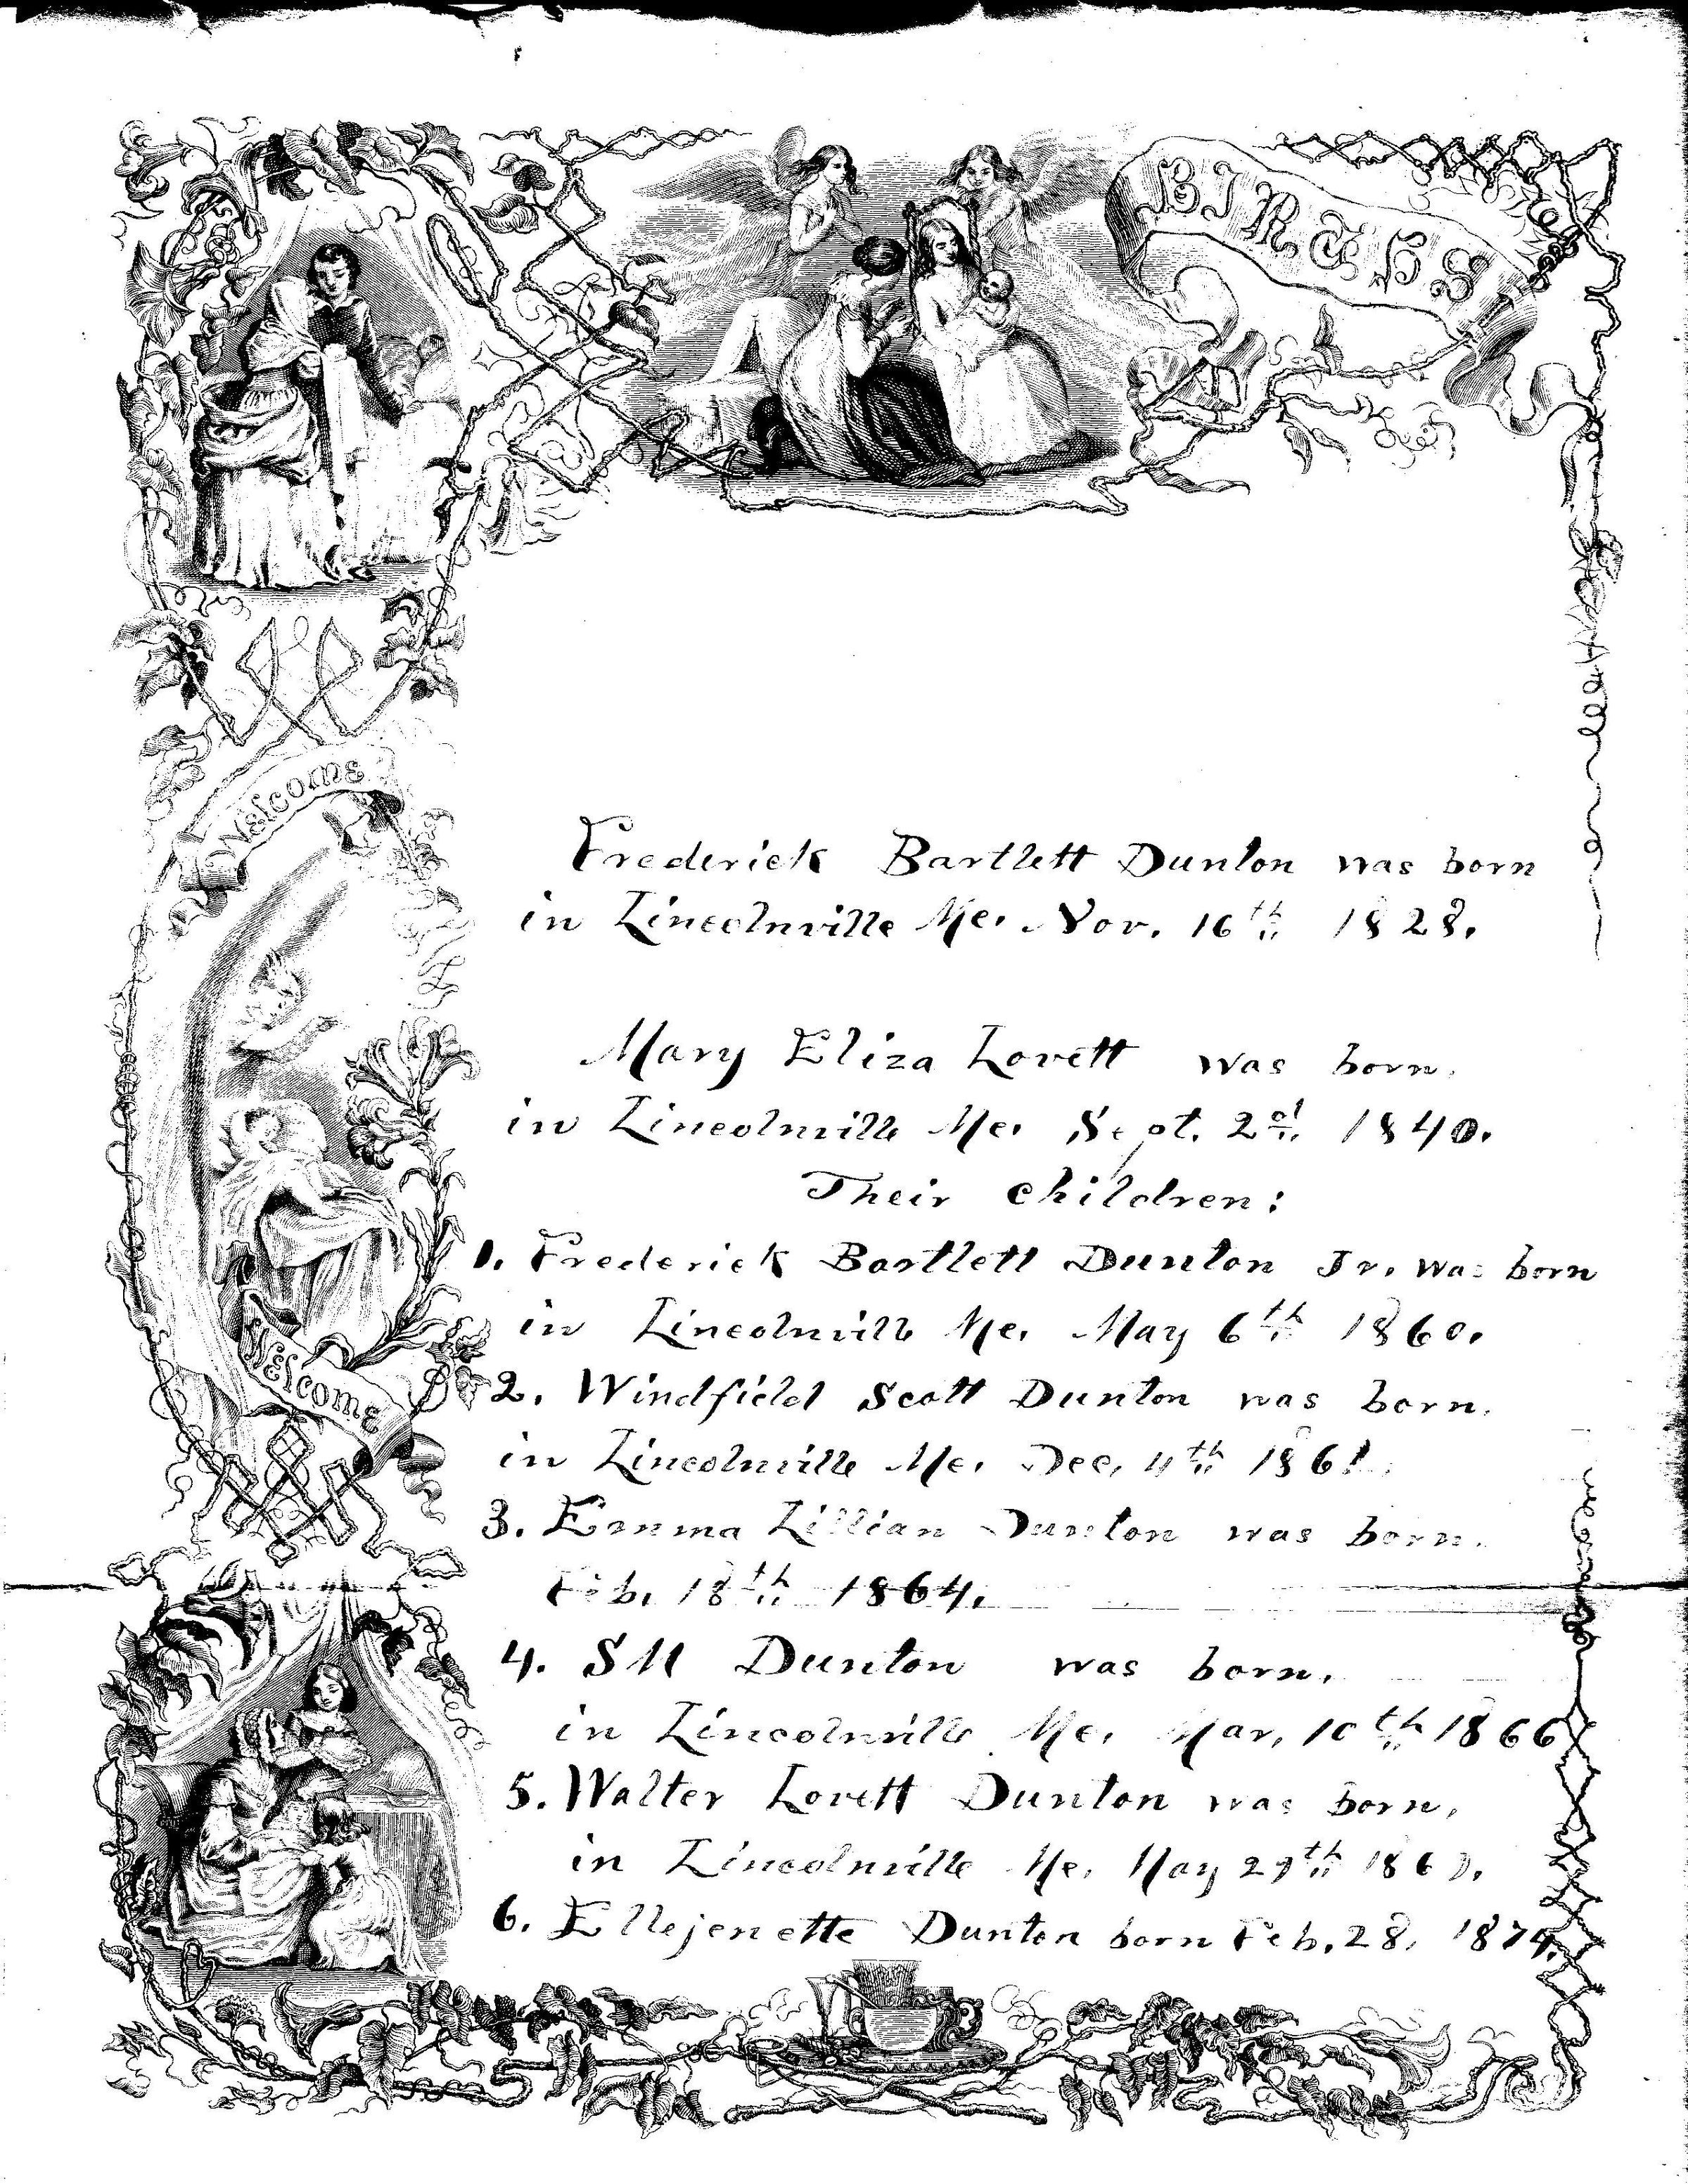 BIRTHS
Welcome
Frederick Bartlett Dunton was born
in Lincolnville Me. Nov. 16th 1828.
Mary Eliza Lovett was born.
in Lincolnville Me. Sept. 2d 1840.
Their children:
1. Frederick Bartlett Dunton Jr. was born
in Lincolnville Me. May 6th 1860.
Welcome
2. Windfield Scott Dunton was born.
in Lincolnville Me. Dec. 4th 1861.
3. Emma Lillian Dunton was born.
Feb. 18th 1864.
4. SM Dunton was born.
in Lincolnville Me. Mar. 10th 1866
5. Walter Lovett Dunton was born.
in Lincolnville Me. May
6. Ellejenette Dunton born Feb. 28, 1874.